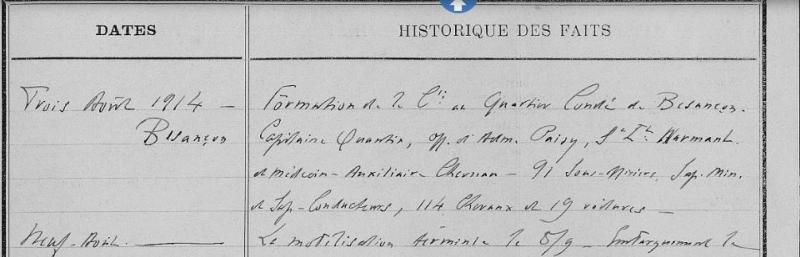 DATES
HISTORIQUE DES FAITS
Trois Août 1914 —
Besançon
Formation de la Cie au Quartier Condé de Besançon.
Capitaine Quantin, off. d'Adm. Paisy, S/Lt Harmant
et Médecin-Auxiliaire — 91 Sous-Officiers, Sap. Min.
et Sap-Conducteurs, 114 Chevaux et 19 voitures —
Neuf-Août. —
La mobilisation terminée le Embarquement le